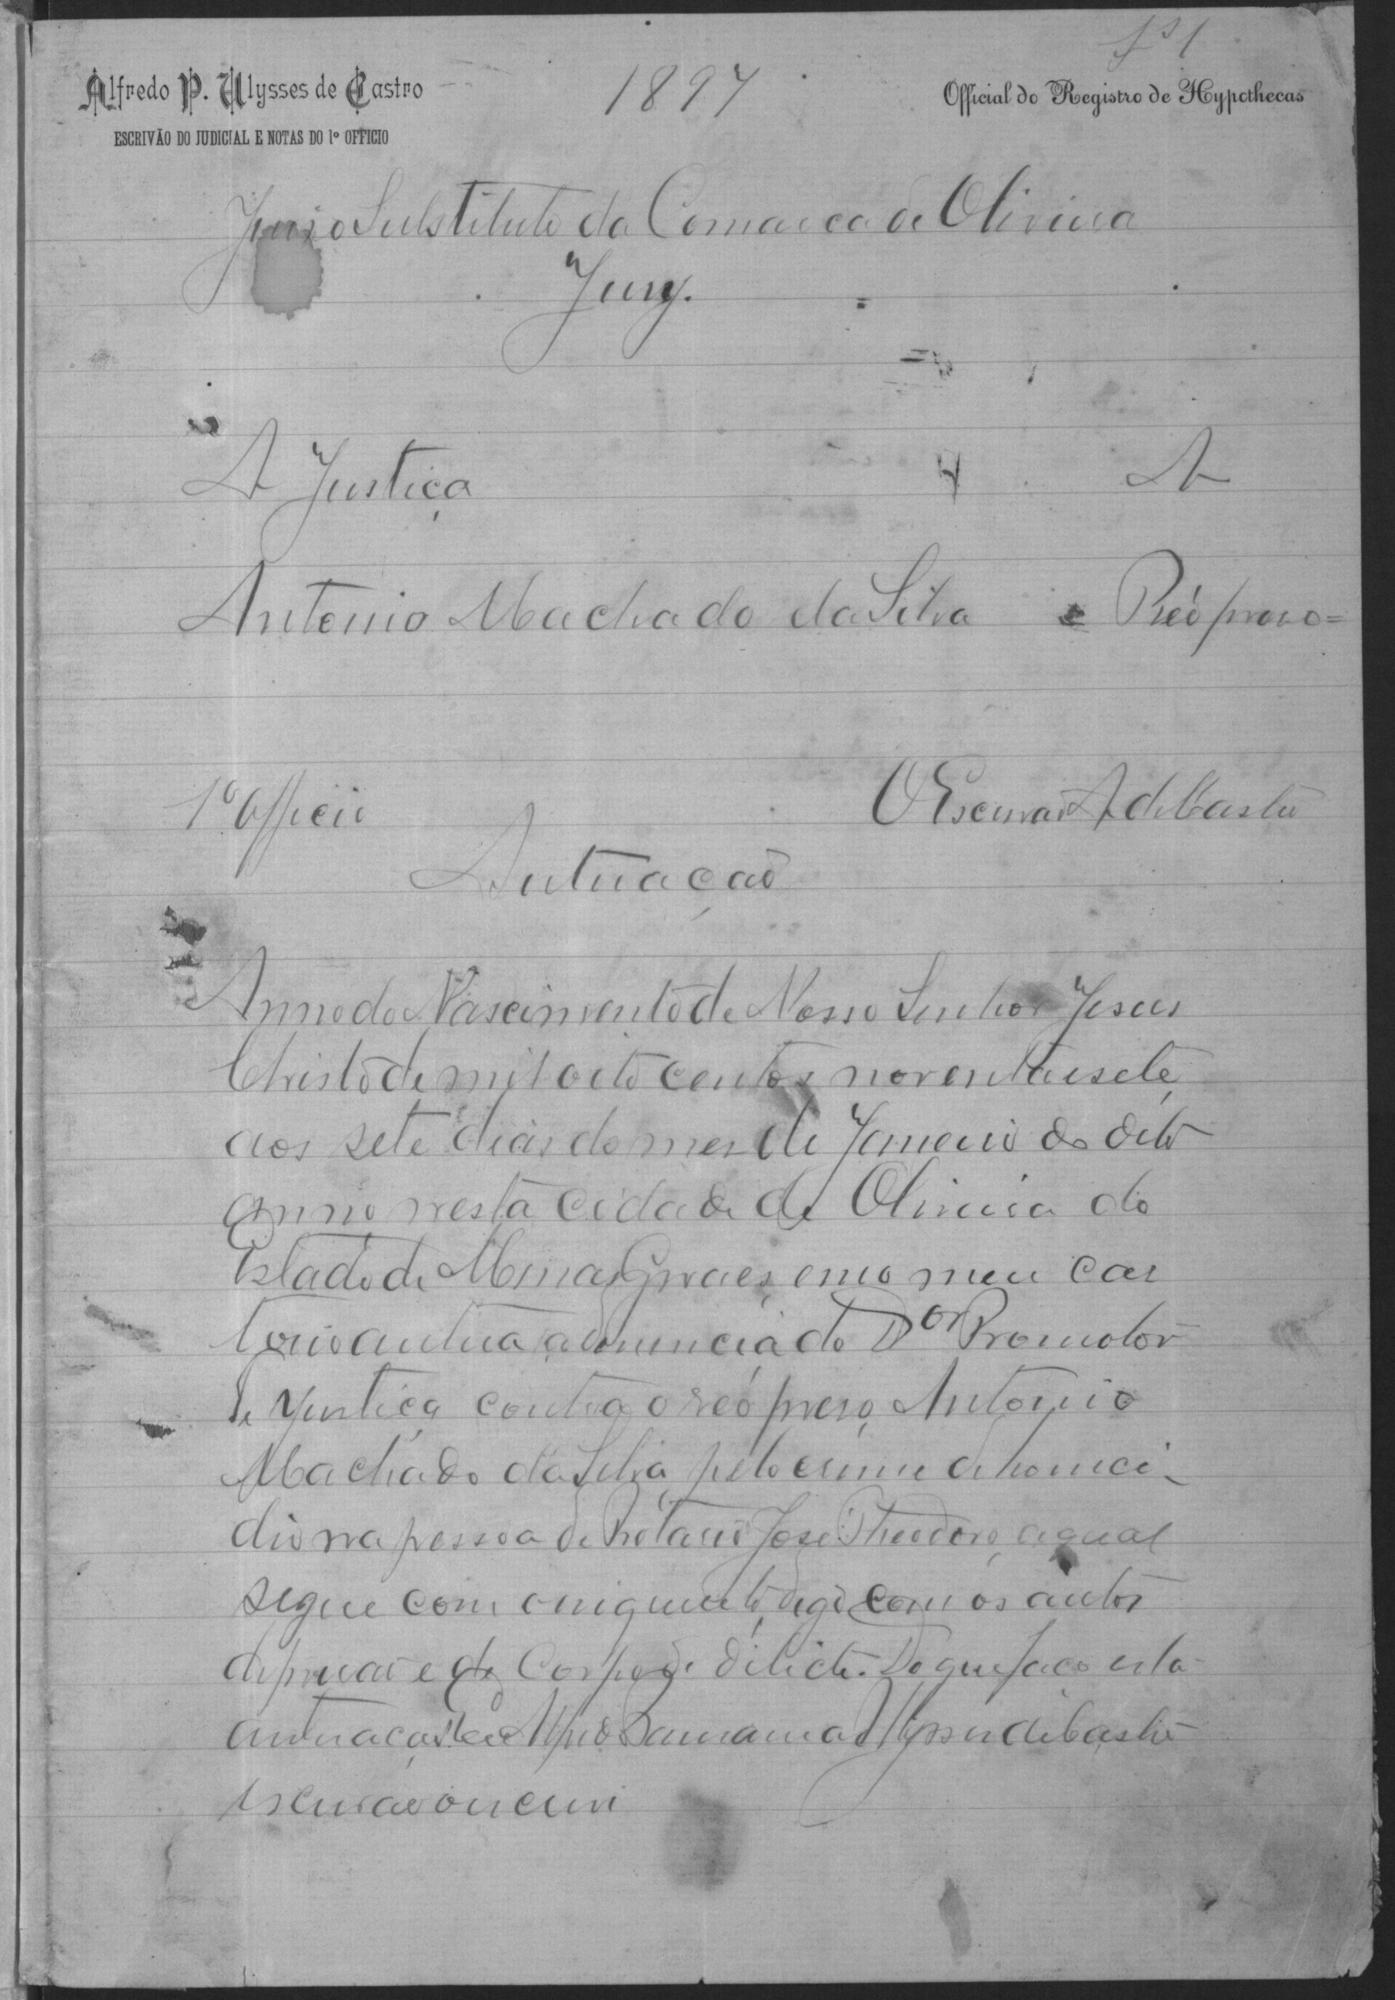 fs 1
Alfredo P. Ulysses de Castro
1897
Official do Registro de Hypothecas
ESCRIVÃO DO JUDICIAL E NOTAS DO 1º OFFICIO
Juizo Substituto da Comarca de Oliveira
Jury.
A Justiça A
Antonio Machado da Silva Réo preso =
1º Officio O Escrivão A de Castro
Autuação
Anno do Nascimento de Nosso Senhor Jesus
Christo de mil oito centos noventa e sete
aos sete dias do mes de Janeiro do dito
anno nesta cidade de Oliveira do
Estado de Minas Geraes, em o meu car
torio autua a denuncia do Dor Promotor
de Justiça contra o reó preso, Antonio
Machado da Silva, pelo crime de homici
dio na pessoa de José Theodoro, a qual
segue com o digo com os autos
de prisão e de Corpo de delicto. Do que faço esta
autuação. Eu Alfredo Ulysses de Castro
escrivão o escrevi